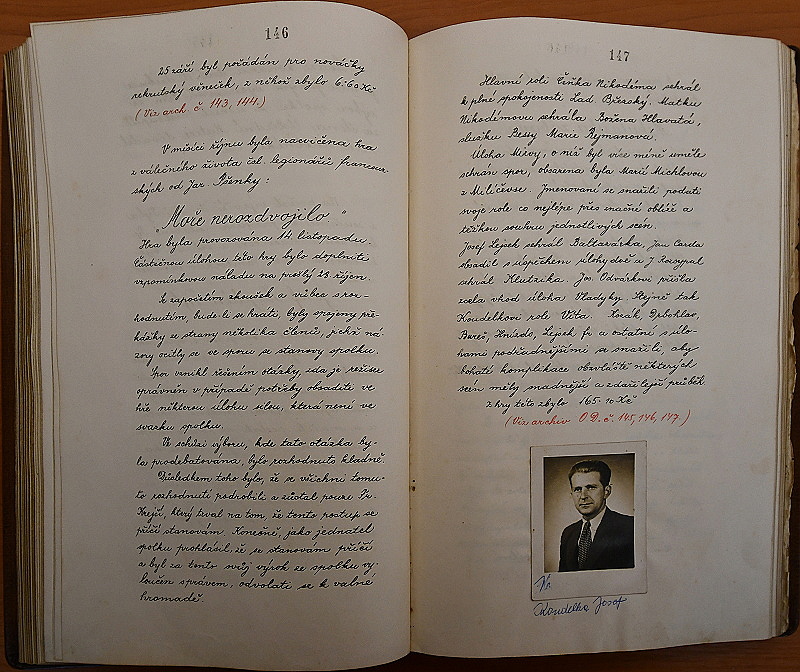 146
25 září byl pořádán pro nováčky
rekrutský věneček, z něhož zbylo 6·60 Kč
(Viz arch. č. 143, 144.)
V měsíci říjnu byla nacvičena hra
z válečného života čsl. legionářů francouz-
ských od Jar. Pšenky:
„Moře nerozdvojilo"
Hra byla provozována 14. listopadu.
Částečnou úlohou této hry bylo doplniti
vzpomínkovou náladu na prošlý 28. říjen.
K započetím zkoušek a vůbec s roz-
hodnutím, bude-li se hráti, byly spojeny pře-
kážky se strany několika členů, jichž ná-
zory ocitly se ve sporu se stanovy spolku.
Spor vznikl řešením otázky, zda je režisér
oprávněn v případě potřeby obsaditi ve
hře některou úlohu silou, která není ve
svazku spolku.
Ve schůzi výboru, kde tato otázka by-
la prodebatována, bylo rozhodnuto kladně.
Důsledkem toho bylo, že se všichni tomu-
to rozhodnutí podrobili a zůstal pouze Fr.
Krejčí, který trval na tom, že tento postup se
příčí stanovám. Konečně, jako jednatel
spolku prohlásil, že se stanovám příčí
a byl za tento svůj výrok ze spolku vy-
loučen správcem, odvolati se k valné
hromadě.
147
Hlavní roli Čeňka Nikodéma sehrál
k plné spokojenosti Lad. Březský. Matku
Nikodémovu sehrála Božena Hlavatá,
služku Bessy Marie Rýmanová.
Úloha Mirvy, o niž byl více méně uměle
schran spor, obsazena byla Marií Michlovou
z Milíčevse. Jmenovaní se snažili podati
svoje role co nejlépe přes značné obtíže a
těžkou souhru jednotlivých scén.
Josef Lejsek sehrál Baltazárka, Jan Carda
shodil s úspěchem úlohy doč a J. Rozsypal
sehrál Klutzika. Jos. Odvárkovi přišla
zcela vhod úloha Vladyky. Stejně tak
Koudelkovi role Víta. Horák, Drbohlav,
Bureš, Hnízdo, Lejsek fr. a ostatní s úlo-
hami podřadnějšími se snažili, aby
bohaté komplikace obzvláště některých
scén měly snadnější a zdařilejší průběh
Z hry této zbylo 165·10 Kč
(Viz archiv O.D. č. 145, 146, 147.)
Koudelka Josef